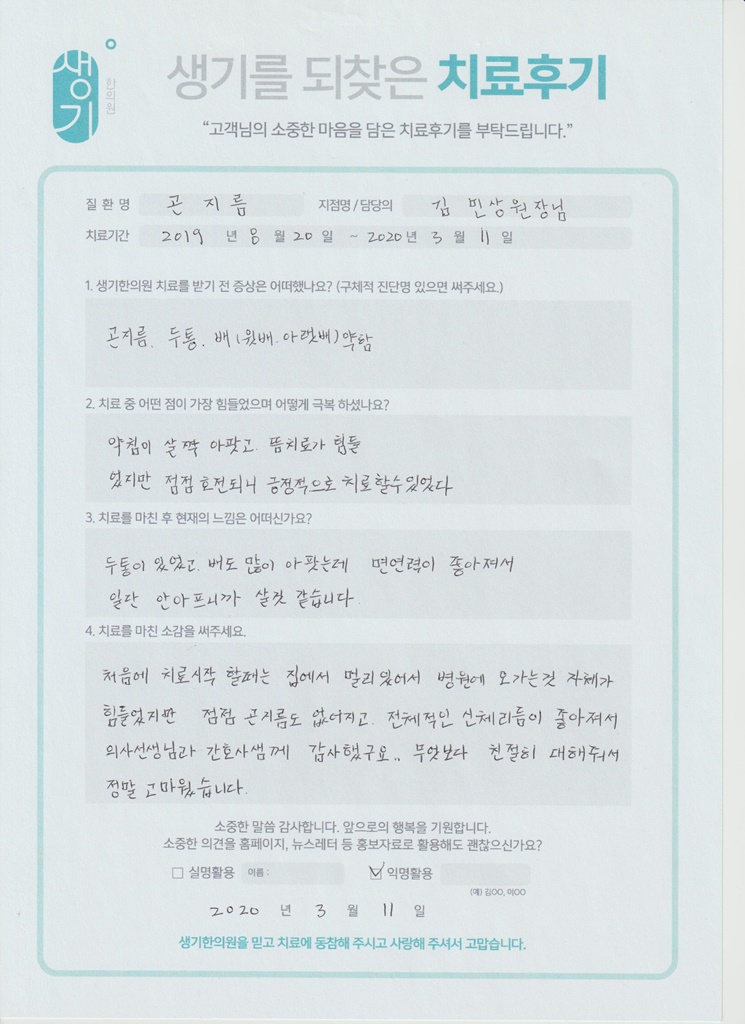 생기
한의원
생기를 되찾은 치료후기
“고객님의 소중한 마음을 담은 치료후기를 부탁드립니다.”
질 환 명 곤 지 름 지점명 / 담당의 김 민상원장님
치료기간 2019 년 8 월 20 일 ~ 2020 년 3 월 11 일
1. 생기한의원 치료를 받기 전 증상은 어떠했나요? (구체적 진단명 있으면 써주세요.)
곤지름, 두통, 배(윗배.아랫배)약함
2. 치료 중 어떤 점이 가장 힘들었으며 어떻게 극복 하셨나요?
약침이 살짝 아팟고. 뜸치료가 힘들
었지만 점점 호전되니 긍정적으로 치료할수있었다
3. 치료를 마친 후 현재의 느낌은 어떠신가요?
두통이 있었고. 배도 많이 아팟는데 면연력이 좋아져서
일단 안아프니까 살것 같습니다.
4. 치료를 마친 소감을 써주세요.
처음에 치료시작 할때는 집에서 멀리있어서 병원에 오가는것 자체가
힘들었지만 점점 곤지름도 없어지고. 전체적인 신체리듬이 좋아져서
의사선생님과 간호사쌤께 감사했구요.. 무엇보다 친절히 대해줘서
정말 고마웠습니다.
소중한 말씀 감사합니다. 앞으로의 행복을 기원합니다.
소중한 의견을 홈페이지, 뉴스레터 등 홍보자료로 활용해도 괜찮으신가요?
□ 실명활용 이름 : ☑ 익명활용
(예) 김OO, 이OO
2020 년 3 월 11 일
생기한의원을 믿고 치료에 동참해 주시고 사랑해 주셔서 고맙습니다.